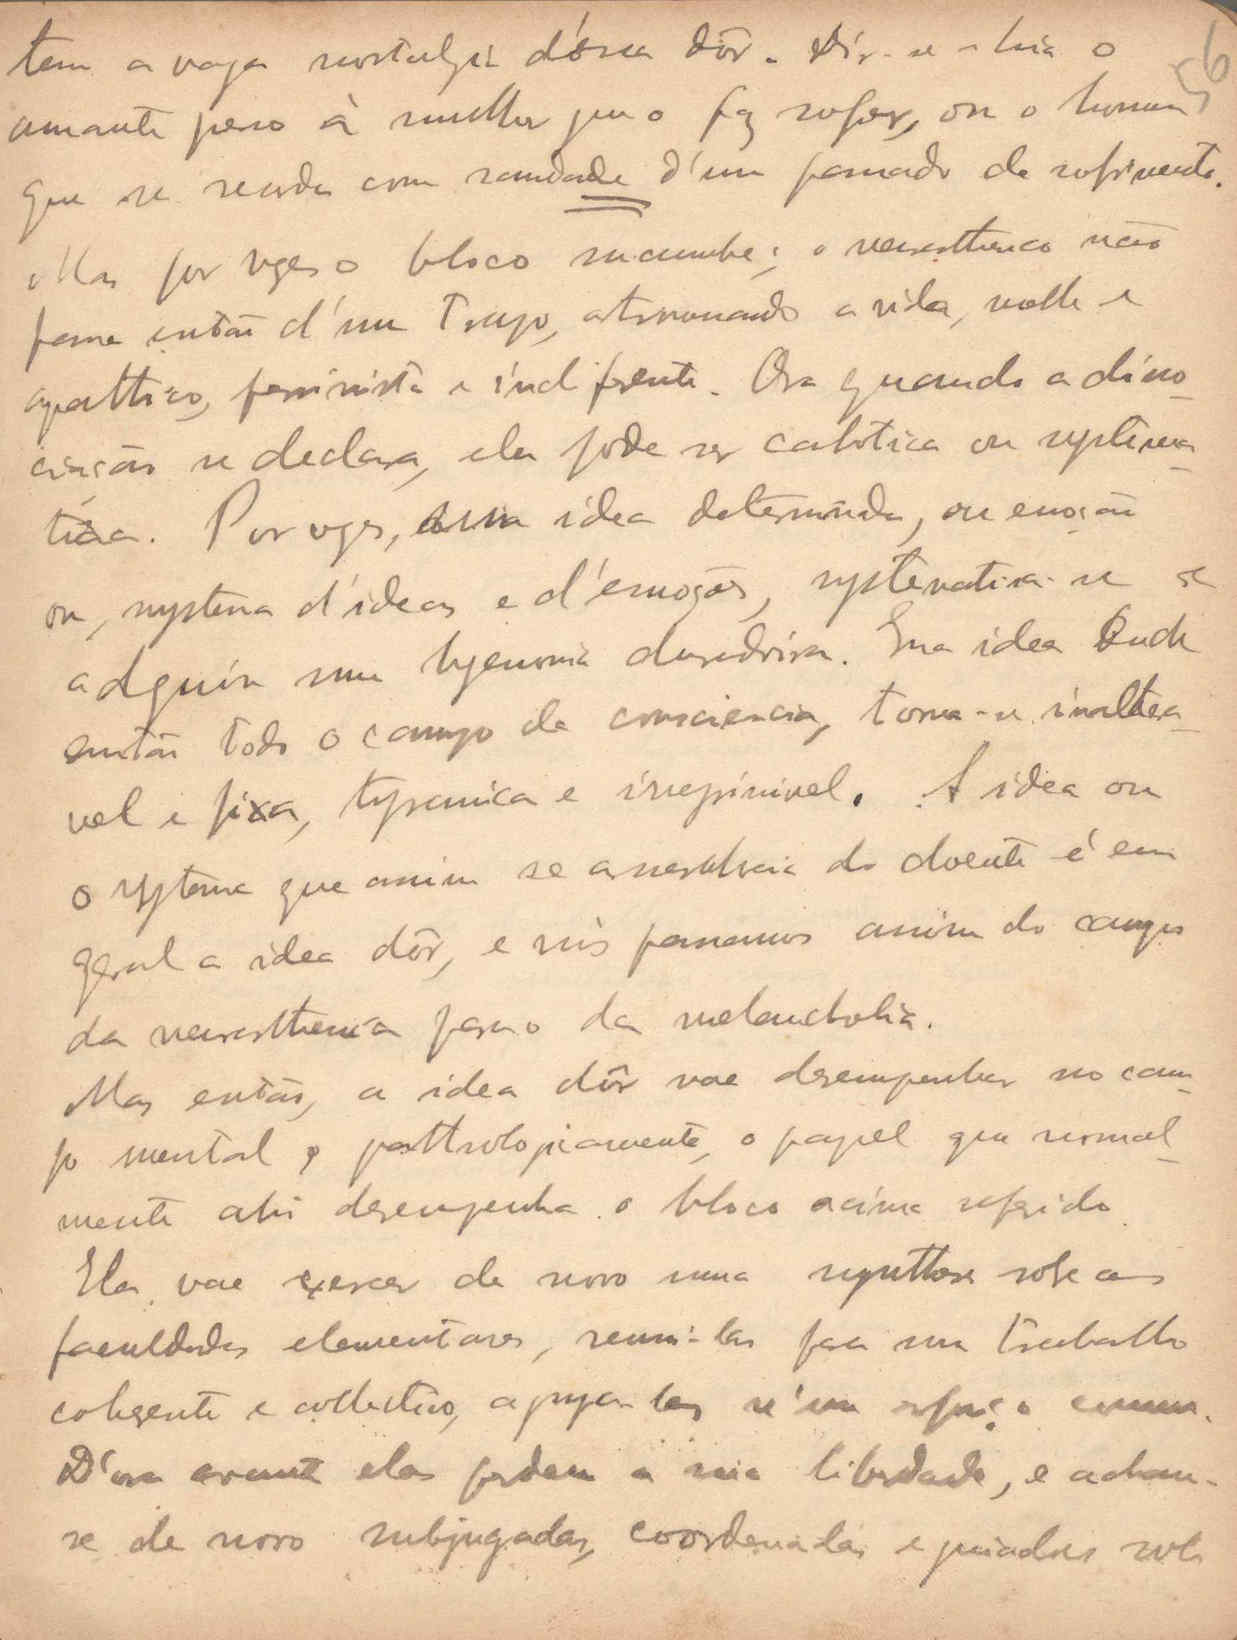 56
tem a vaga nostalgia d'essa dôr. Dir-se-hia o
amante preso à mulher que o faz sofrer, ou o homem
que se recorda com saudade d'um passado de sofrimento.
Mas por vezes o bloco sucumbe; o neurasthenico não
passa então d'um trapo, atravessando a vida, molle e
apathico, feminista e indifferente. Ora quando a disso-
ciação se declara, ela pode ser cahotica ou systema-
tica. Por vezes, uma idea determinada, ou emoção
ou, systema d'ideas e d'emoções, systematisa-se se
adquire uma hegemonia duradoira. Essa idea enche
então todo o campo da consciencia, torna-se inaltera-
vel e fixa, tyranica e irreprimivel. A idea ou
o systema que assim se assenhoreia do doente é em
geral a idea dôr, e nós passamos assim do campo
da neurasthenia para o da melancholia.
Mas então, a idea dôr vae desempenhar no cam-
po mental, pathologicamente, o papel que normal-
mente ahi desempenha o bloco acima referido
Ela vae exercer de novo uma synthese sobre as
faculdades elementares, reuni-las para um trabalho
coherente e collectivo, agrupa-las n'um esforço comum.
D'ora avante elas perdem a sua liberdade, e acham-
se de novo subjugadas, coordenadas e guiadas sob